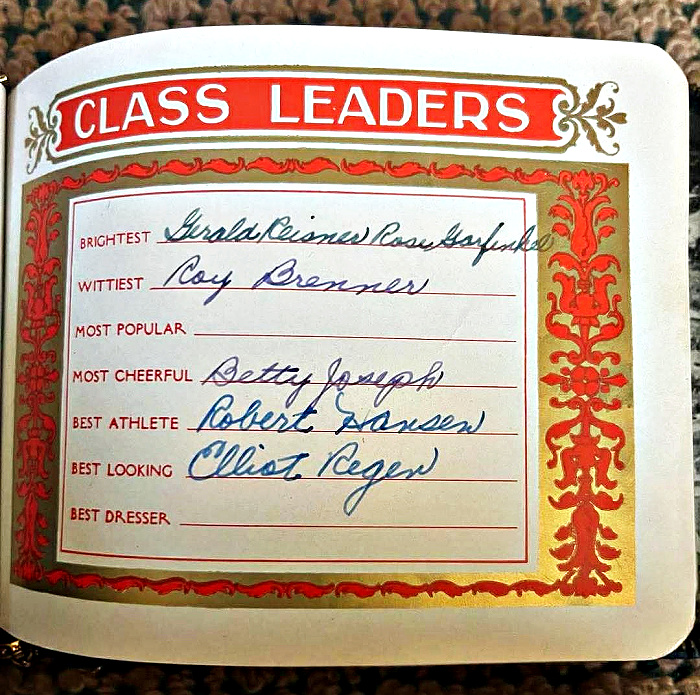 CLASS LEADERS
BRIGHTEST Gerald Reisner Rose Garfinkel
WITTIEST Roy Brenner
MOST POPULAR
MOST CHEERFUL Betty Joseph
BEST ATHLETE Robert Hansen
BEST LOOKING Elliot Regen
BEST DRESSER